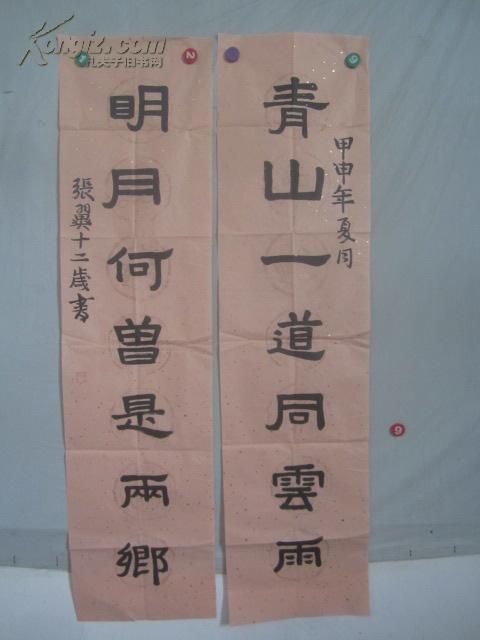 青山一道同雲雨
甲申年夏月
明月何曾是兩鄉
張翼十二歲書
Kongfz.com
孔夫子旧书网
2
9
9